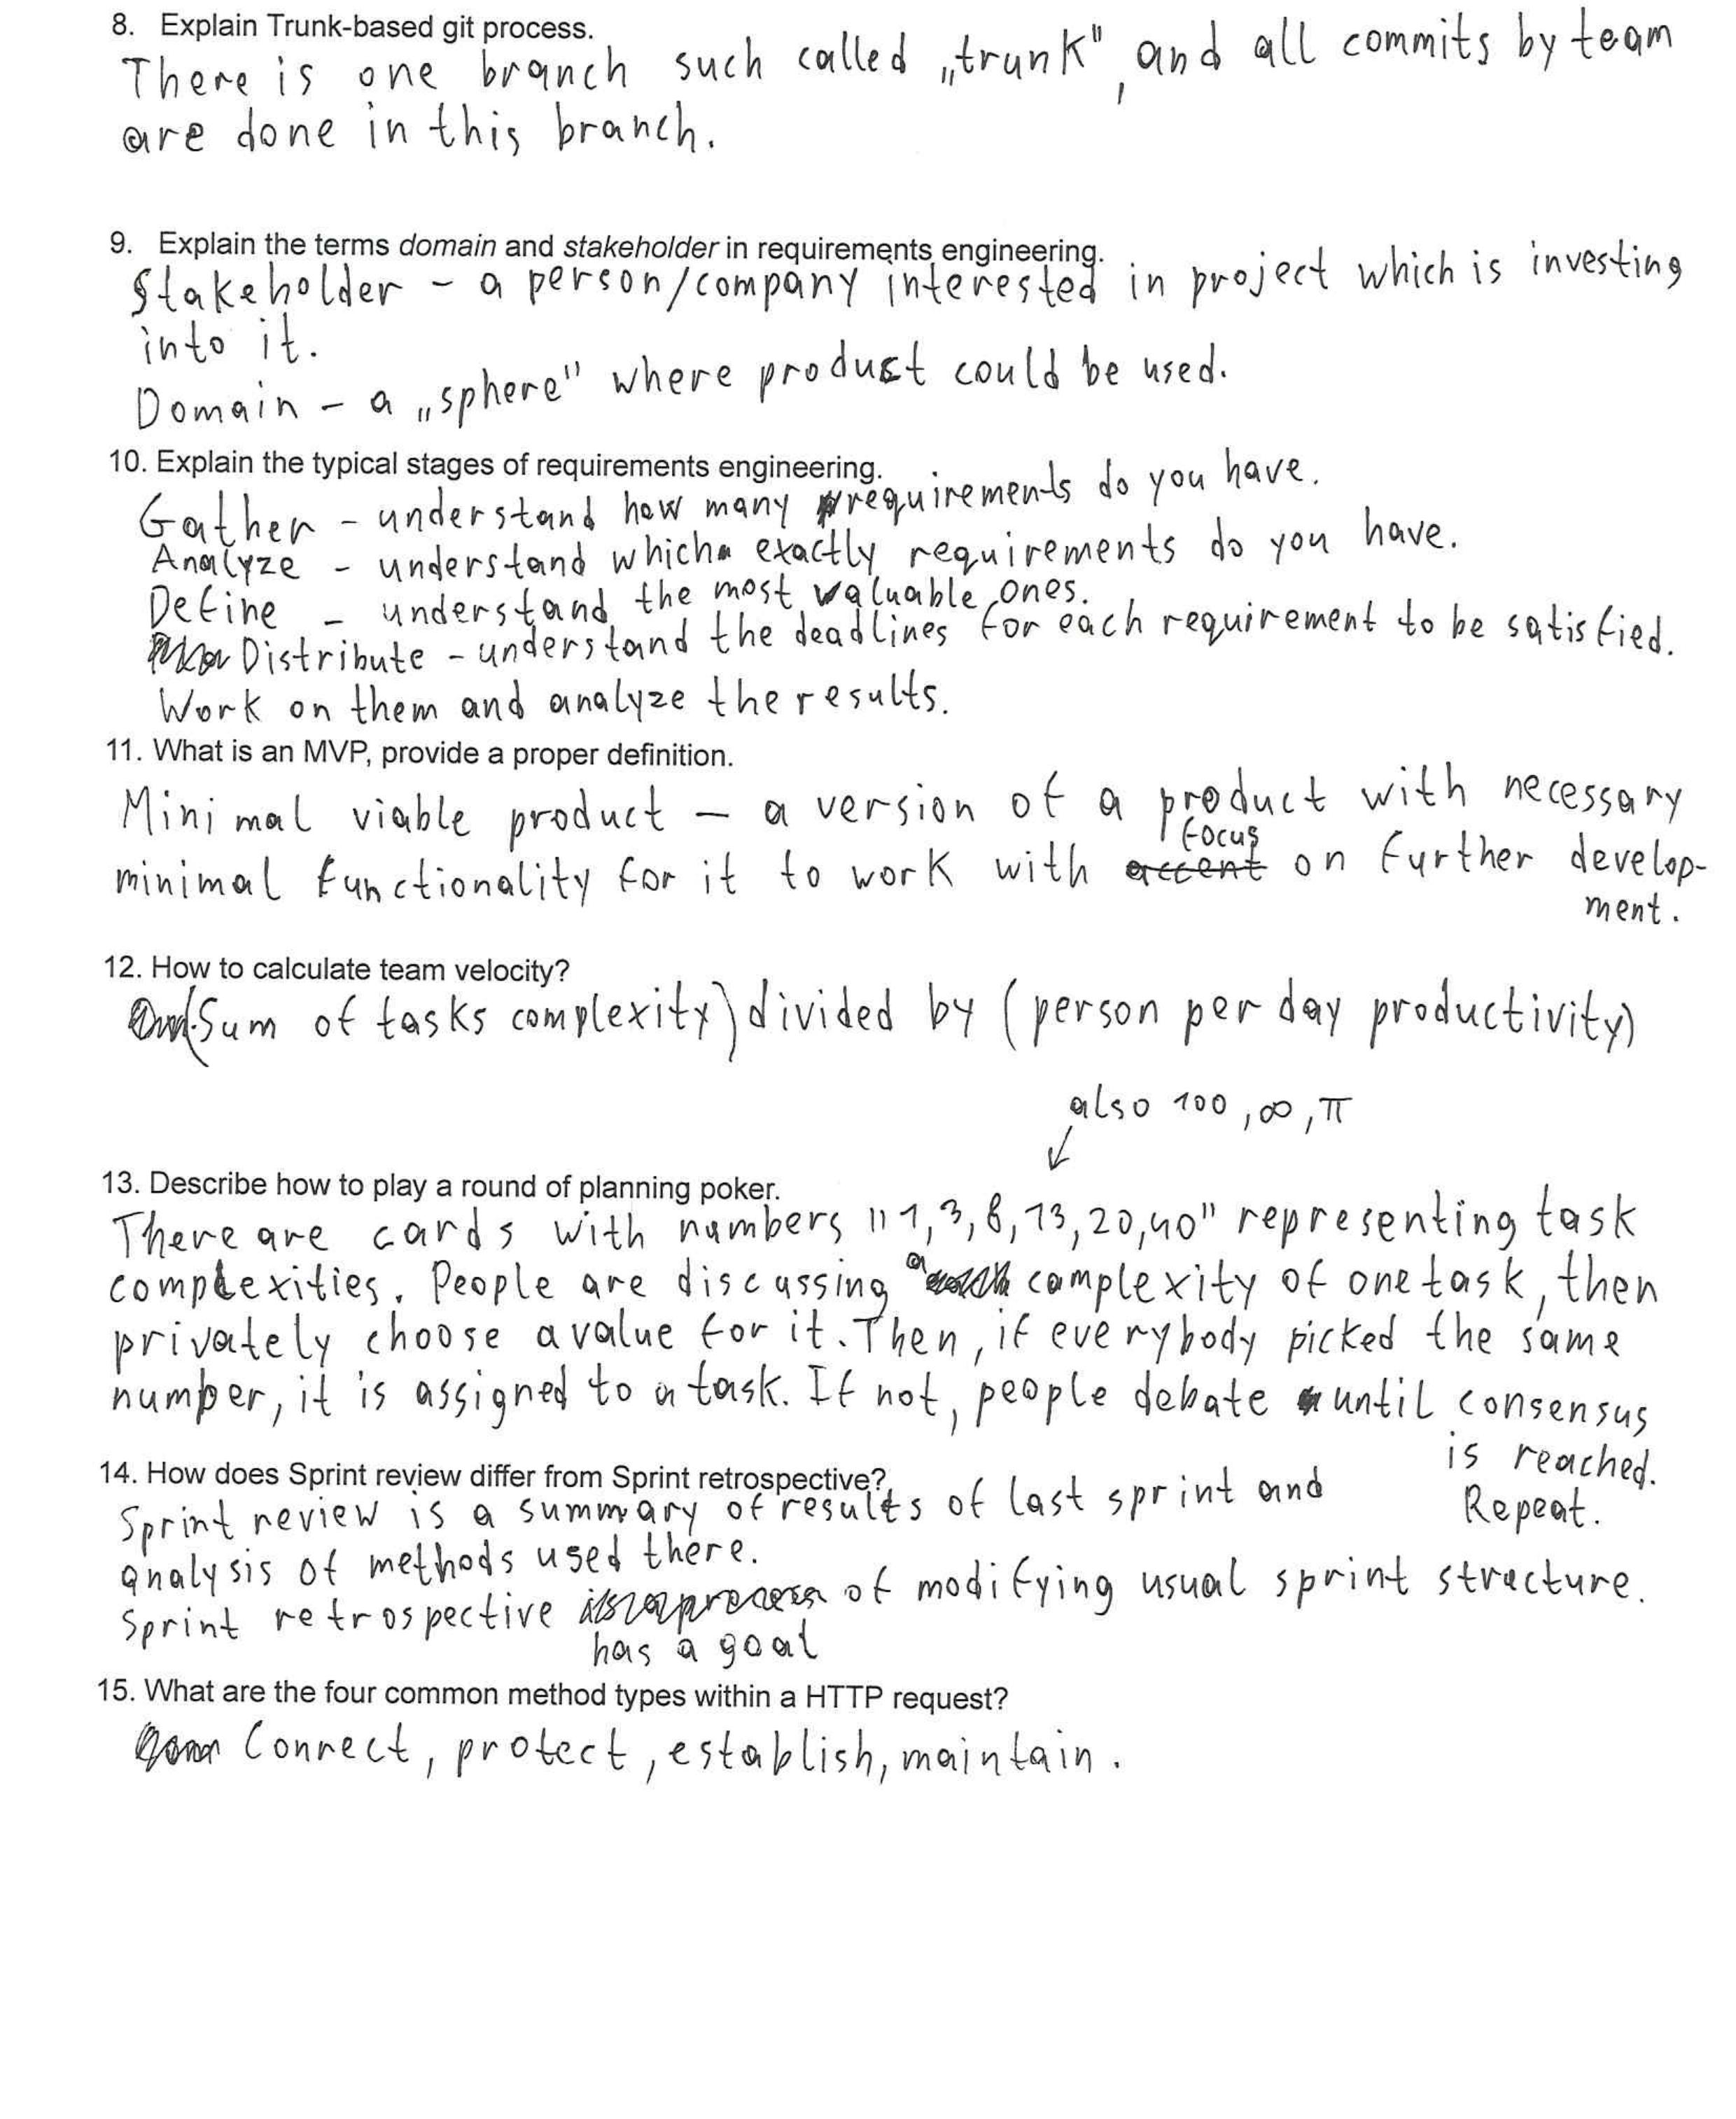 8. Explain Trunk-based git process.
There is one branch such called „trunk", and all commits by team
are done in this branch.
9. Explain the terms domain and stakeholder in requirements engineering.
Stakeholder - a person/company interested in project which is investing
into it.
Domain - a „sphere" where product could be used.
10. Explain the typical stages of requirements engineering.
Gather - understand how many requirements do you have.
Analyze - understand which exactly requirements do you have.
Define - understand the most valuable ones.
Distribute - understand the deadlines for each requirement to be satisfied.
Work on them and analyze the results.
11. What is an MVP, provide a proper definition.
Minimal viable product - a version of a product with necessary
minimal functionality for it to work with accent focus on further develop-
ment.
12. How to calculate team velocity?
(Sum of tasks complexity) divided by (person per day productivity)
also 100, ∞, π
13. Describe how to play a round of planning poker.
There are cards with numbers "1, 3, 8, 13, 20, 40" representing task
complexities. People are discussing a complexity of one task, then
privately choose a value for it. Then, if everybody picked the same
number, it is assigned to a task. If not, people debate until consensus
is reached.
Repeat.
14. How does Sprint review differ from Sprint retrospective?
Sprint review is a summary of results of last sprint and
analysis of methods used there.
Sprint retrospective has a goal of modifying usual sprint structure.
15. What are the four common method types within a HTTP request?
Connect, protect, establish, maintain.